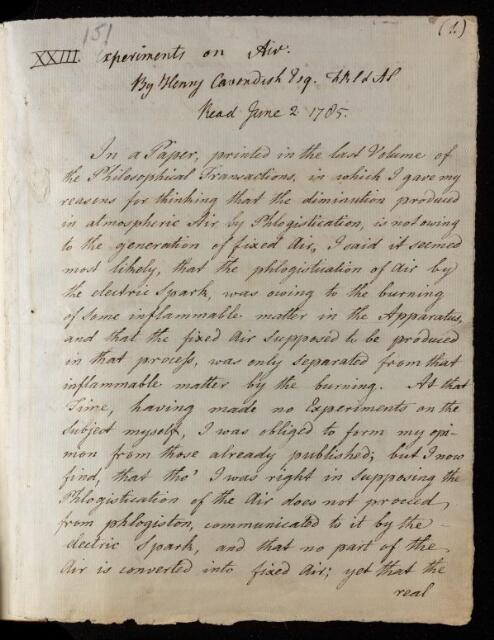 151 (1.)
XXIII. Experiments on Air.
By Henry Cavendish Esq. F.R.S. & A.S
Read June 2 1785.
In a Paper, printed in the last Volume of
the Philosophical Transactions, in which I gave my
reasons for thinking that the diminution produced
in atmospheric Air by Phlogistication, is not owing
to the generation of fixed Air, I said it seemed
most likely, that the phlogistication of Air by
the electric spark, was owing to the burning
of some inflammable matter in the Apparatus,
and that the fixed Air supposed to be produced
in that process, was only separated from that
inflammable matter by the burning. At that
Time, having made no Experiments on the
Subject myself, I was obliged to form my opi-
nion from those already published; but I now
find, that tho' I was right in supposing the
Phlogistication of the Air does not proceed
from phlogiston, communicated to it by the
electric Spark, and that no part of the
Air is converted into fixed Air; yet that the
real